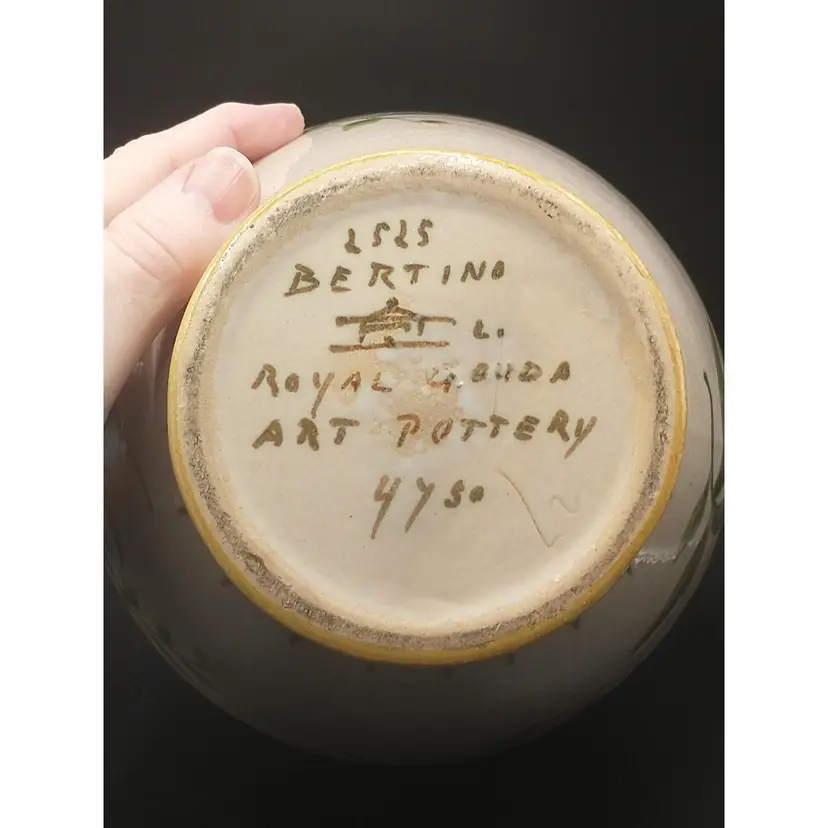 2525
BERTINO
L.
ROYAL GOUDA
ART POTTERY